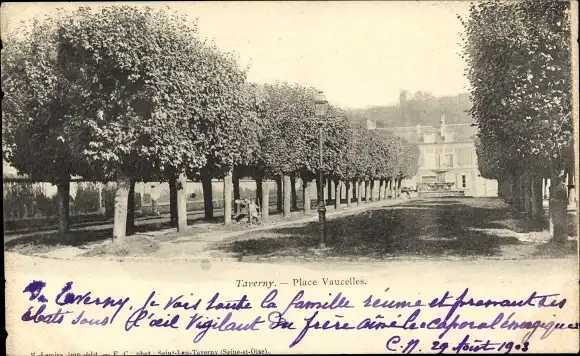 Taverny. — Place Vaucelles.
De Taverny. je vois toute la famille réeume et prennant ses
ébats sous l'œil vigilant du frère aîmé le caporal énergique
C. N. 29 Août 1903
E. C., phot. Saint-Leu-Taverny (Seine-et-Oise).